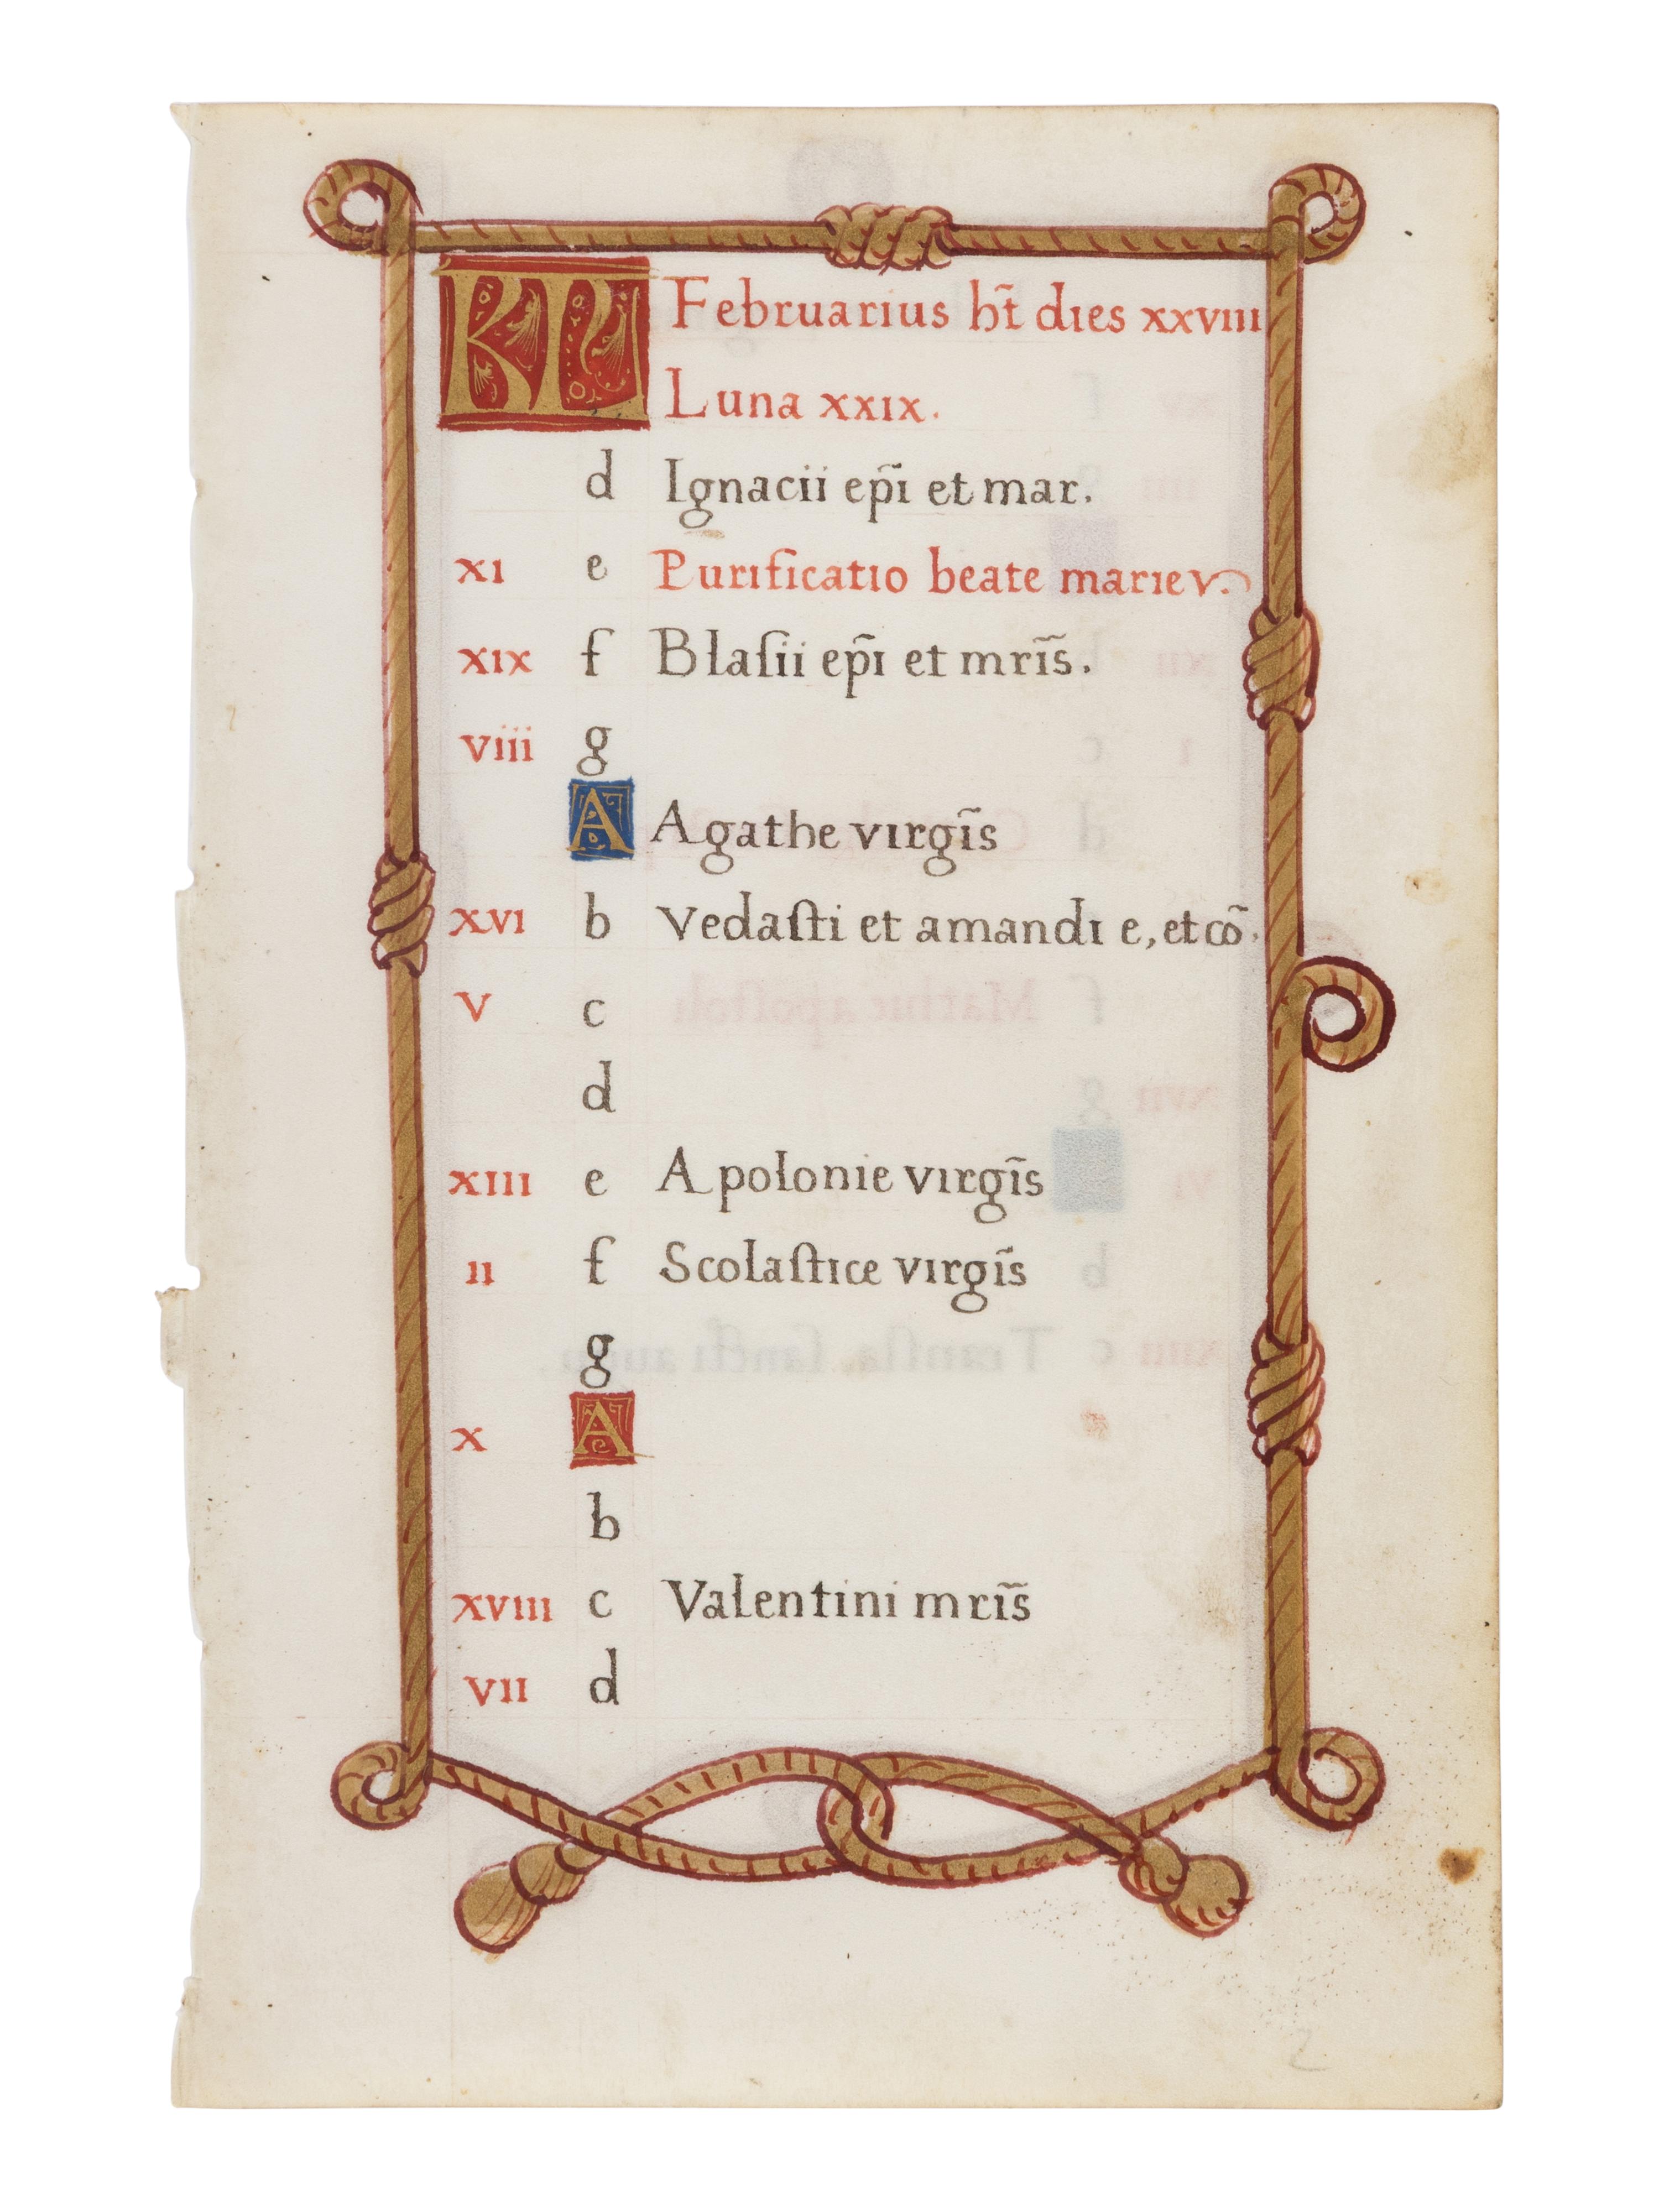 KL Februarius ht̃ dies xxviii
Luna xxix.
d Ignacii ep̃i et mar.
xi e Purificatio beate marie v.
xix f Blaſii ep̃i et mrĩs.
viii g
A Agathe virgĩs
xvi b Vedaſti et amandi e, et cõ.
v c
d
xiii e Apolonie virgĩs
ii f Scolaſtice virgĩs
g
x A
b
xviii c Valentini mrĩs
vii d
2